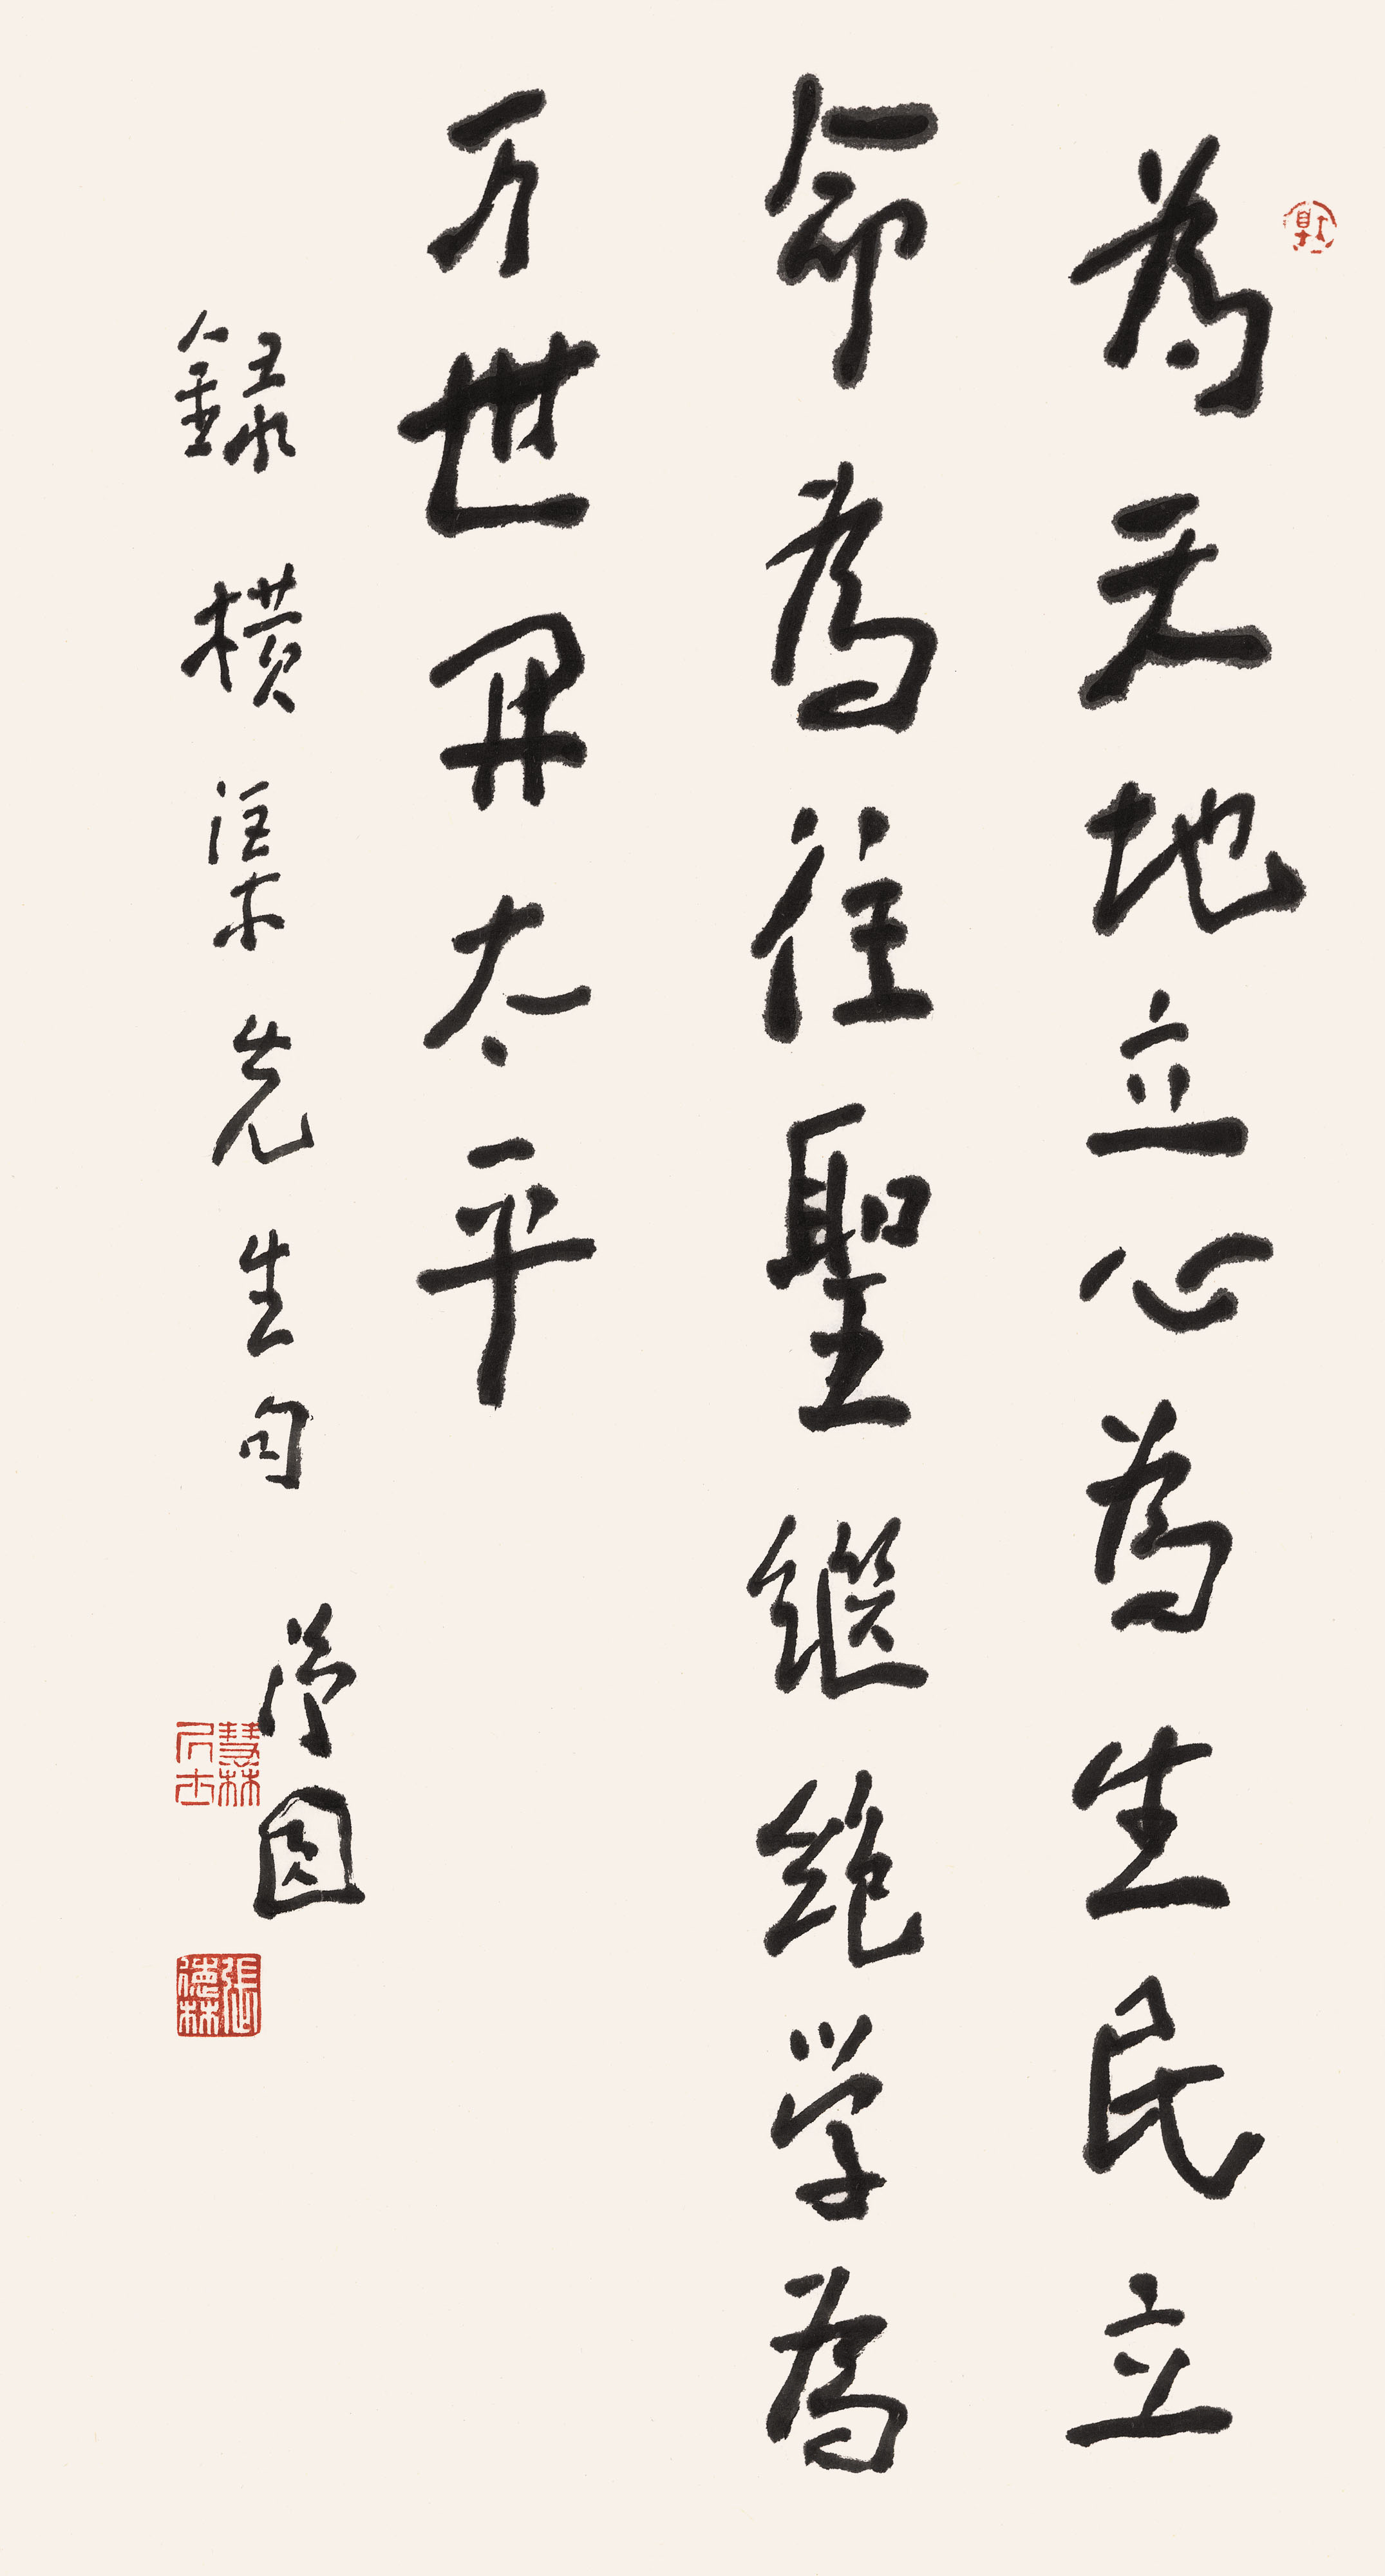 為天地立心為生民立
命為往聖繼絕学為
万世開太平
錄橫渠先生句
慧林居士
張德林